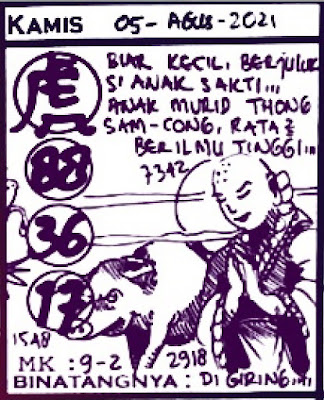 KAMIS 05-AGUS-2021
BIAR KECIL, BERJULUK
SI ANAK SAKTI...
ANAK MURID THONG
SAM-CONG, RATA2
BERILMU TINGGI...
7342
虎
88
36
17
1548
MK : 9-2 2918
BINATANGNYA : DI GIRING....